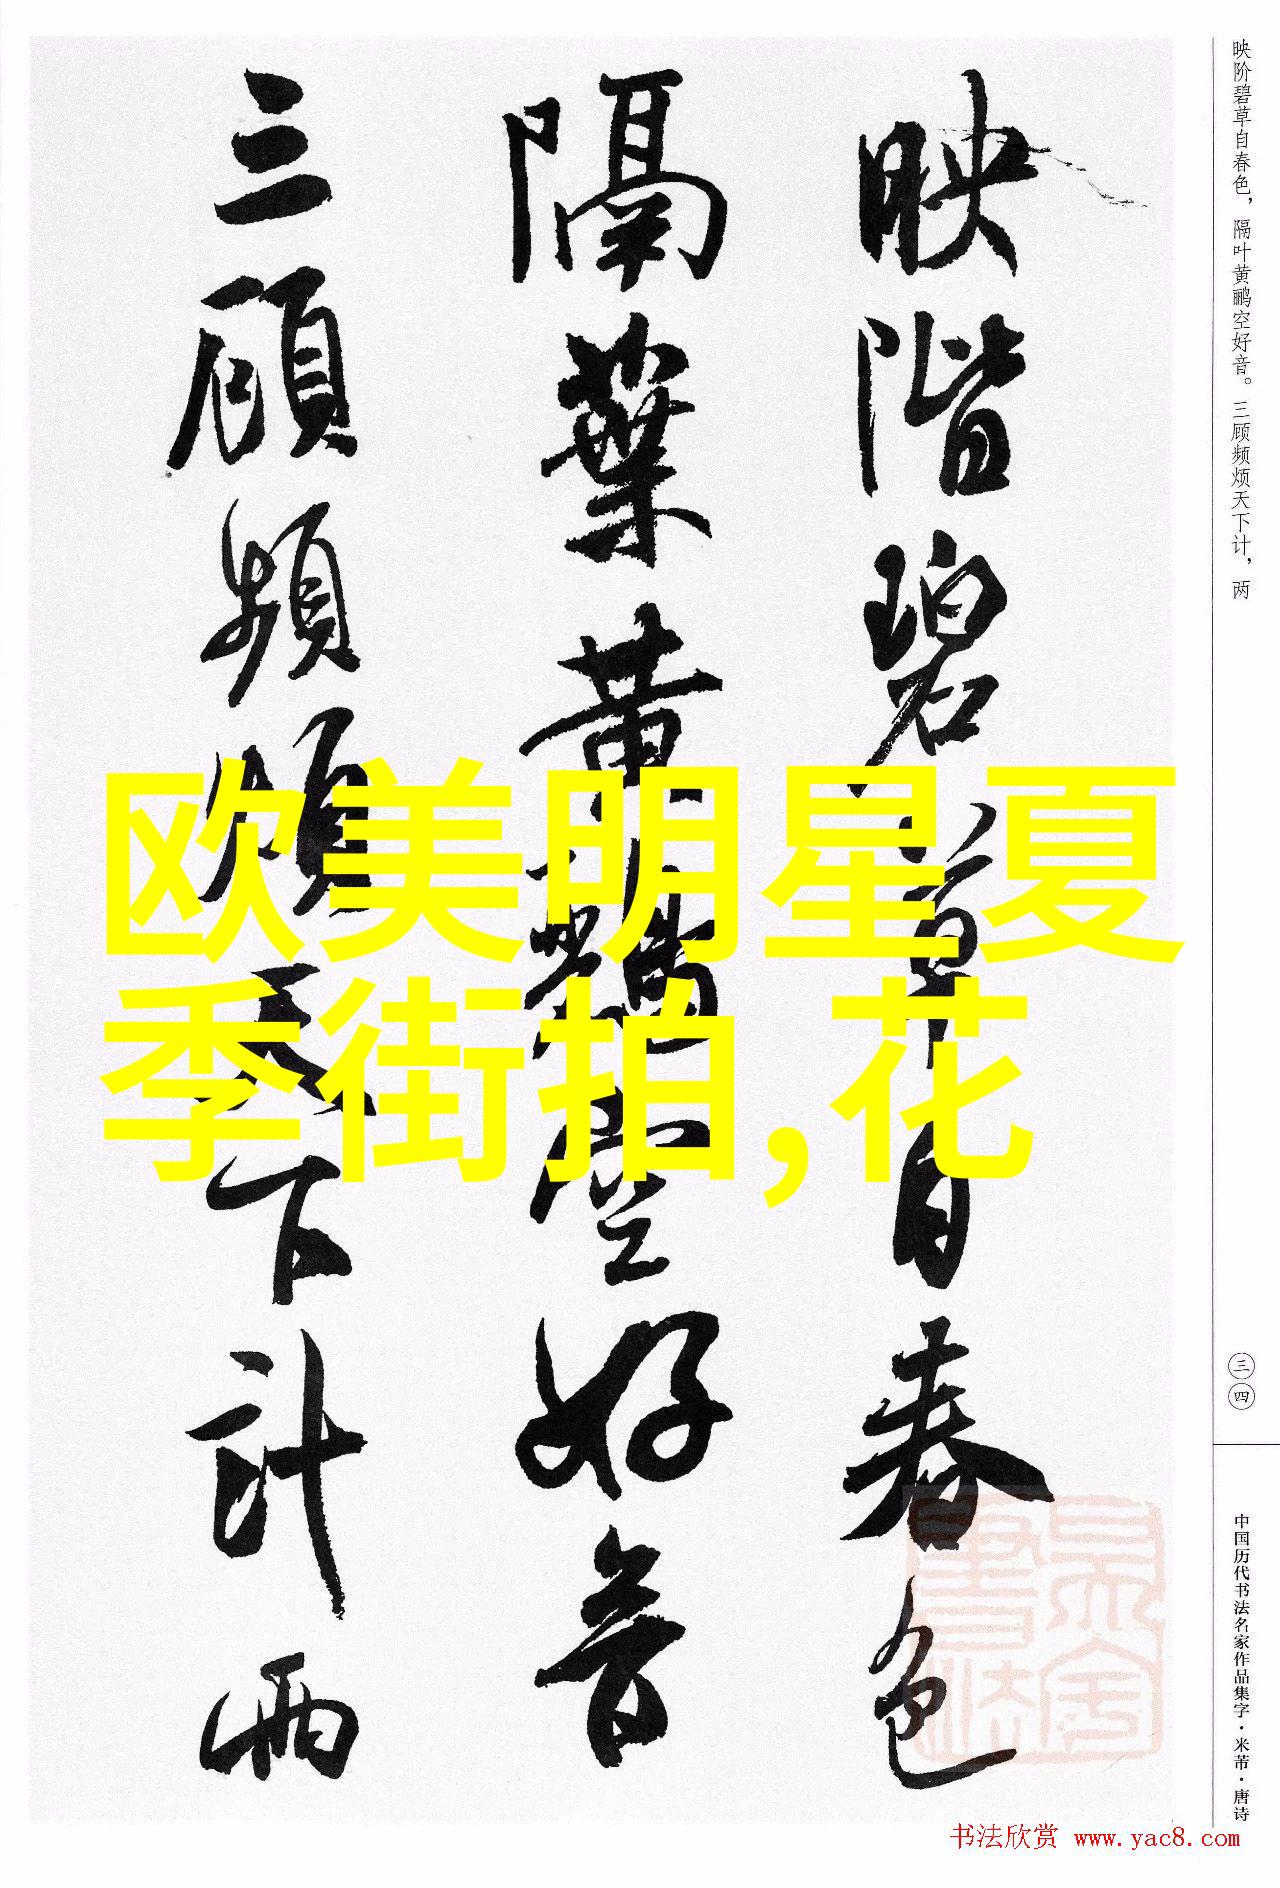 映階碧草自春色
隔葉黄鸝空好音
三顧頻煩天下計兩
欧美明星夏
季街拍,花
映阶碧草自春色，隔叶黄鹂空好音。三顾频烦天下计，两
三四
中国历代书法名家作品集字·米芾·唐诗
书法欣赏 www.yac8.com